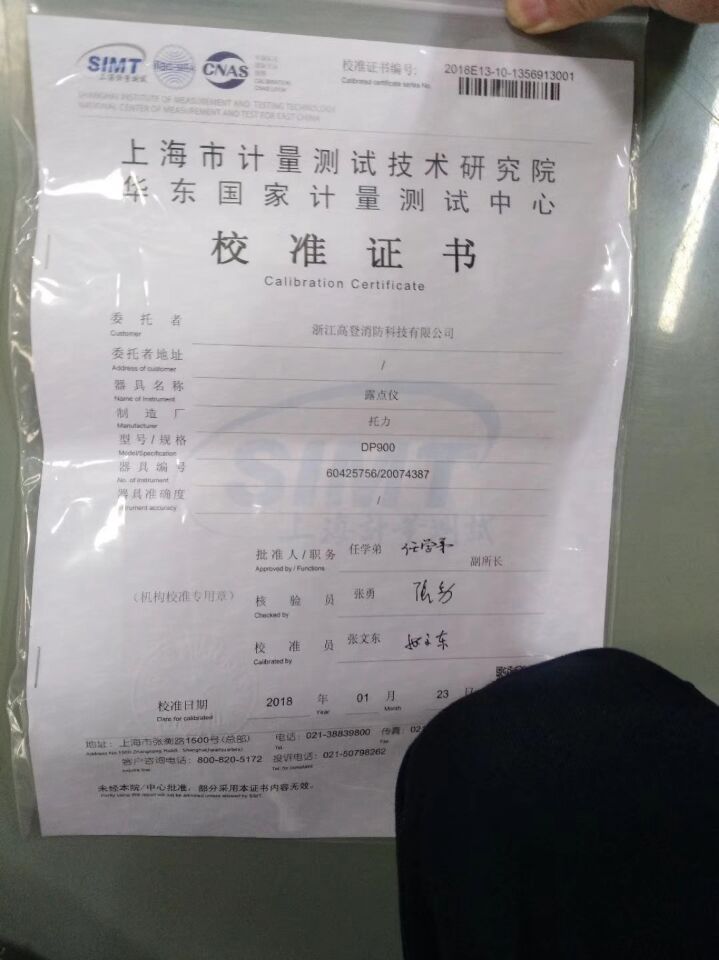 SIMT
上海计量测试
CNAS
CALIBRATION
校准证书编号:
2018E13-10-1356913001
Calibrated certificate series No.
SHANGHAI INSTITUTE OF MEASUREMENT AND TESTING TECHNOLOGY
NATIONAL CENTER OF MEASUREMENT AND TEST FOR EAST CHINA
上海市计量测试技术研究院
华东国家计量测试中心
校准证书
Calibration Certificate
委托者 浙江高登消防科技有限公司
Customer
委托者地址 /
Address of customer
器具名称 露点仪
Name of Instrument
制造厂 托力
Manufacturer
型号/规格 DP900
Model/Specification
器具编号 60425756/20074387
No. of Instrument
器具准确度 /
Instrument accuracy
SIMT
上海计量测试
批准人/职务 任学弟 任学弟 副所长
Approved by / Functions
(机构校准专用章)
核验员 张勇 张勇
Checked by
校准员 张文东
Calibrated by
校准日期 2018 年 01 月 23
Date for calibrated Year Month
地址: 上海市张衡路1500号(总部) 电话: 021-38839800 传真: 02
Address No.1500 Zhangheng Road, Shanghai(headquarters) Tel.
客户咨询电话: 800-820-5172 投诉电话: 021-50798262
Inquire line Tel. for complaint
未经本院/中心批准, 部分采用本证书内容无效。
Partly using this report will not be admitted unless allowed by SIMT.